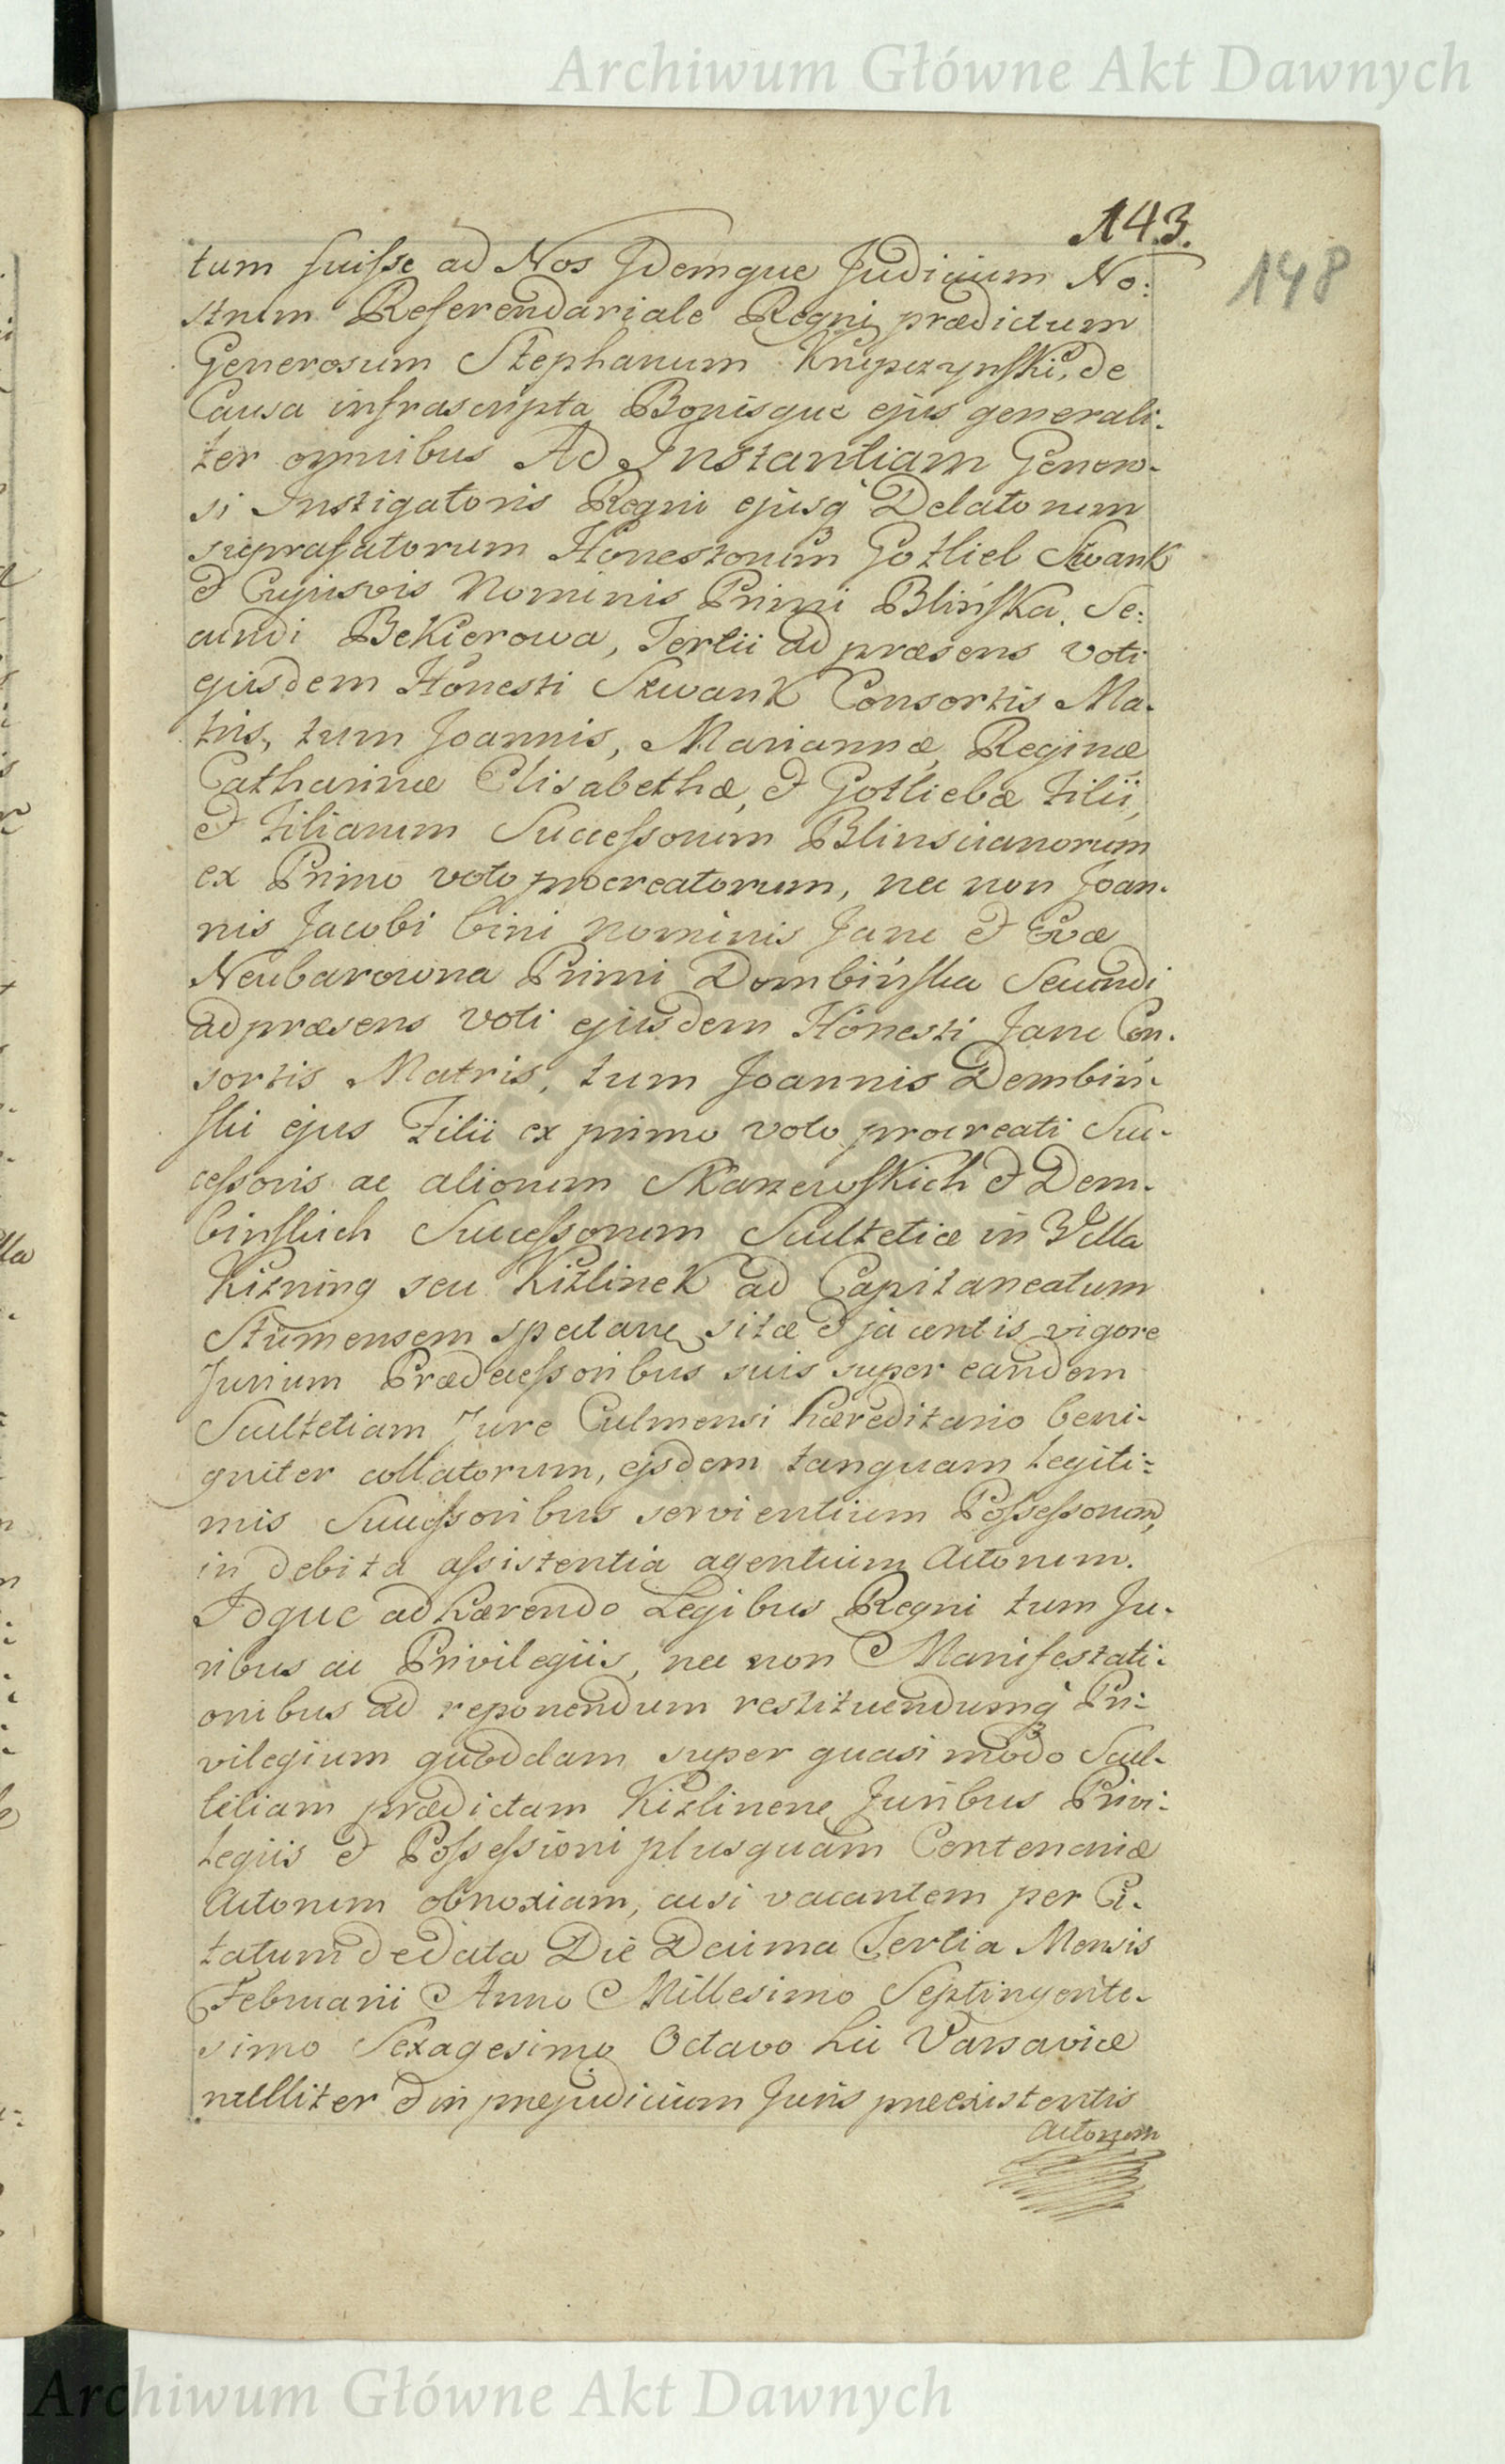 Archiwum Główne Akt Dawnych
143.
148
tum fuisse ad Nos Idemque Judicium No:
strum Referendariale Regni prædictum
Generosum Stephanum Knipczynski, de
Causa infrascripta Bonisque ejus generali-
ter omnibus Ad Instantiam Genero-
si Instigatoris Regni ejusq̃ Delatorum
suprafatorum Honestorum Gotlieb Szwank
& Cujusvis Nominis Primi Blińska, Se:
cundi Bekierowa, Tertii ad præsens voti
ejusdem Honesti Szwank Consortis Ma-
tris, tum Joannis, Mariannæ, Reginæ
Catharinæ Elisabethæ, & Gotliebæ Filii,
& Filiarum Successorum Blinscianorum
ex Primo voto procreatorum, nec non Joan-
nis Jacobi bini nominis Jane & Evæ
Neubarowna Primi Dombińska Secundi
ad præsens voti ejusdem Honesti Jane Con-
sortis Matris, tum Joannis Dembiń-
ski ejus Filii ex primo voto procreati Suc-
cessoris ac aliorum Skanzewskich & Dem-
binskich Successorum Scultetiæ in Villa
Kitzning seu Kizlinek ad Capitaneatum
Stumensem spectane sitæ & jacentis vigore
Jurium Prædecessoribus suis super eandem
Scultetiam Jure Culmensi hæreditario beni-
gniter collatorum, ejsdem tanquam Legiti-
mis Successoribus servientium Possessorum,
in debita assistentia agentium Actorum.
Idque adhærendo Legibus Regni tum Ju-
ribus ac Privilegiis, nec non Manifestati-
onibus ad reponendum restituendumq̃ Pri-
vilegium quoddam super quasi modo Scul-
tetiam prædictam Kizlinene Juribus Privi-
legiis & Possessioni plusquam Centenariæ
Actorum obnoxiam, acsi vacantem per Ci-
tatum de data Die Decima Tertia Mensis
Februarii Anno Millesimo Septingente-
simo Sexagesimo Octavo hic Varsaviæ
nulliter & in prejudicium Juris preexistentis
Actorum
Archiwum Główne Akt Dawnych